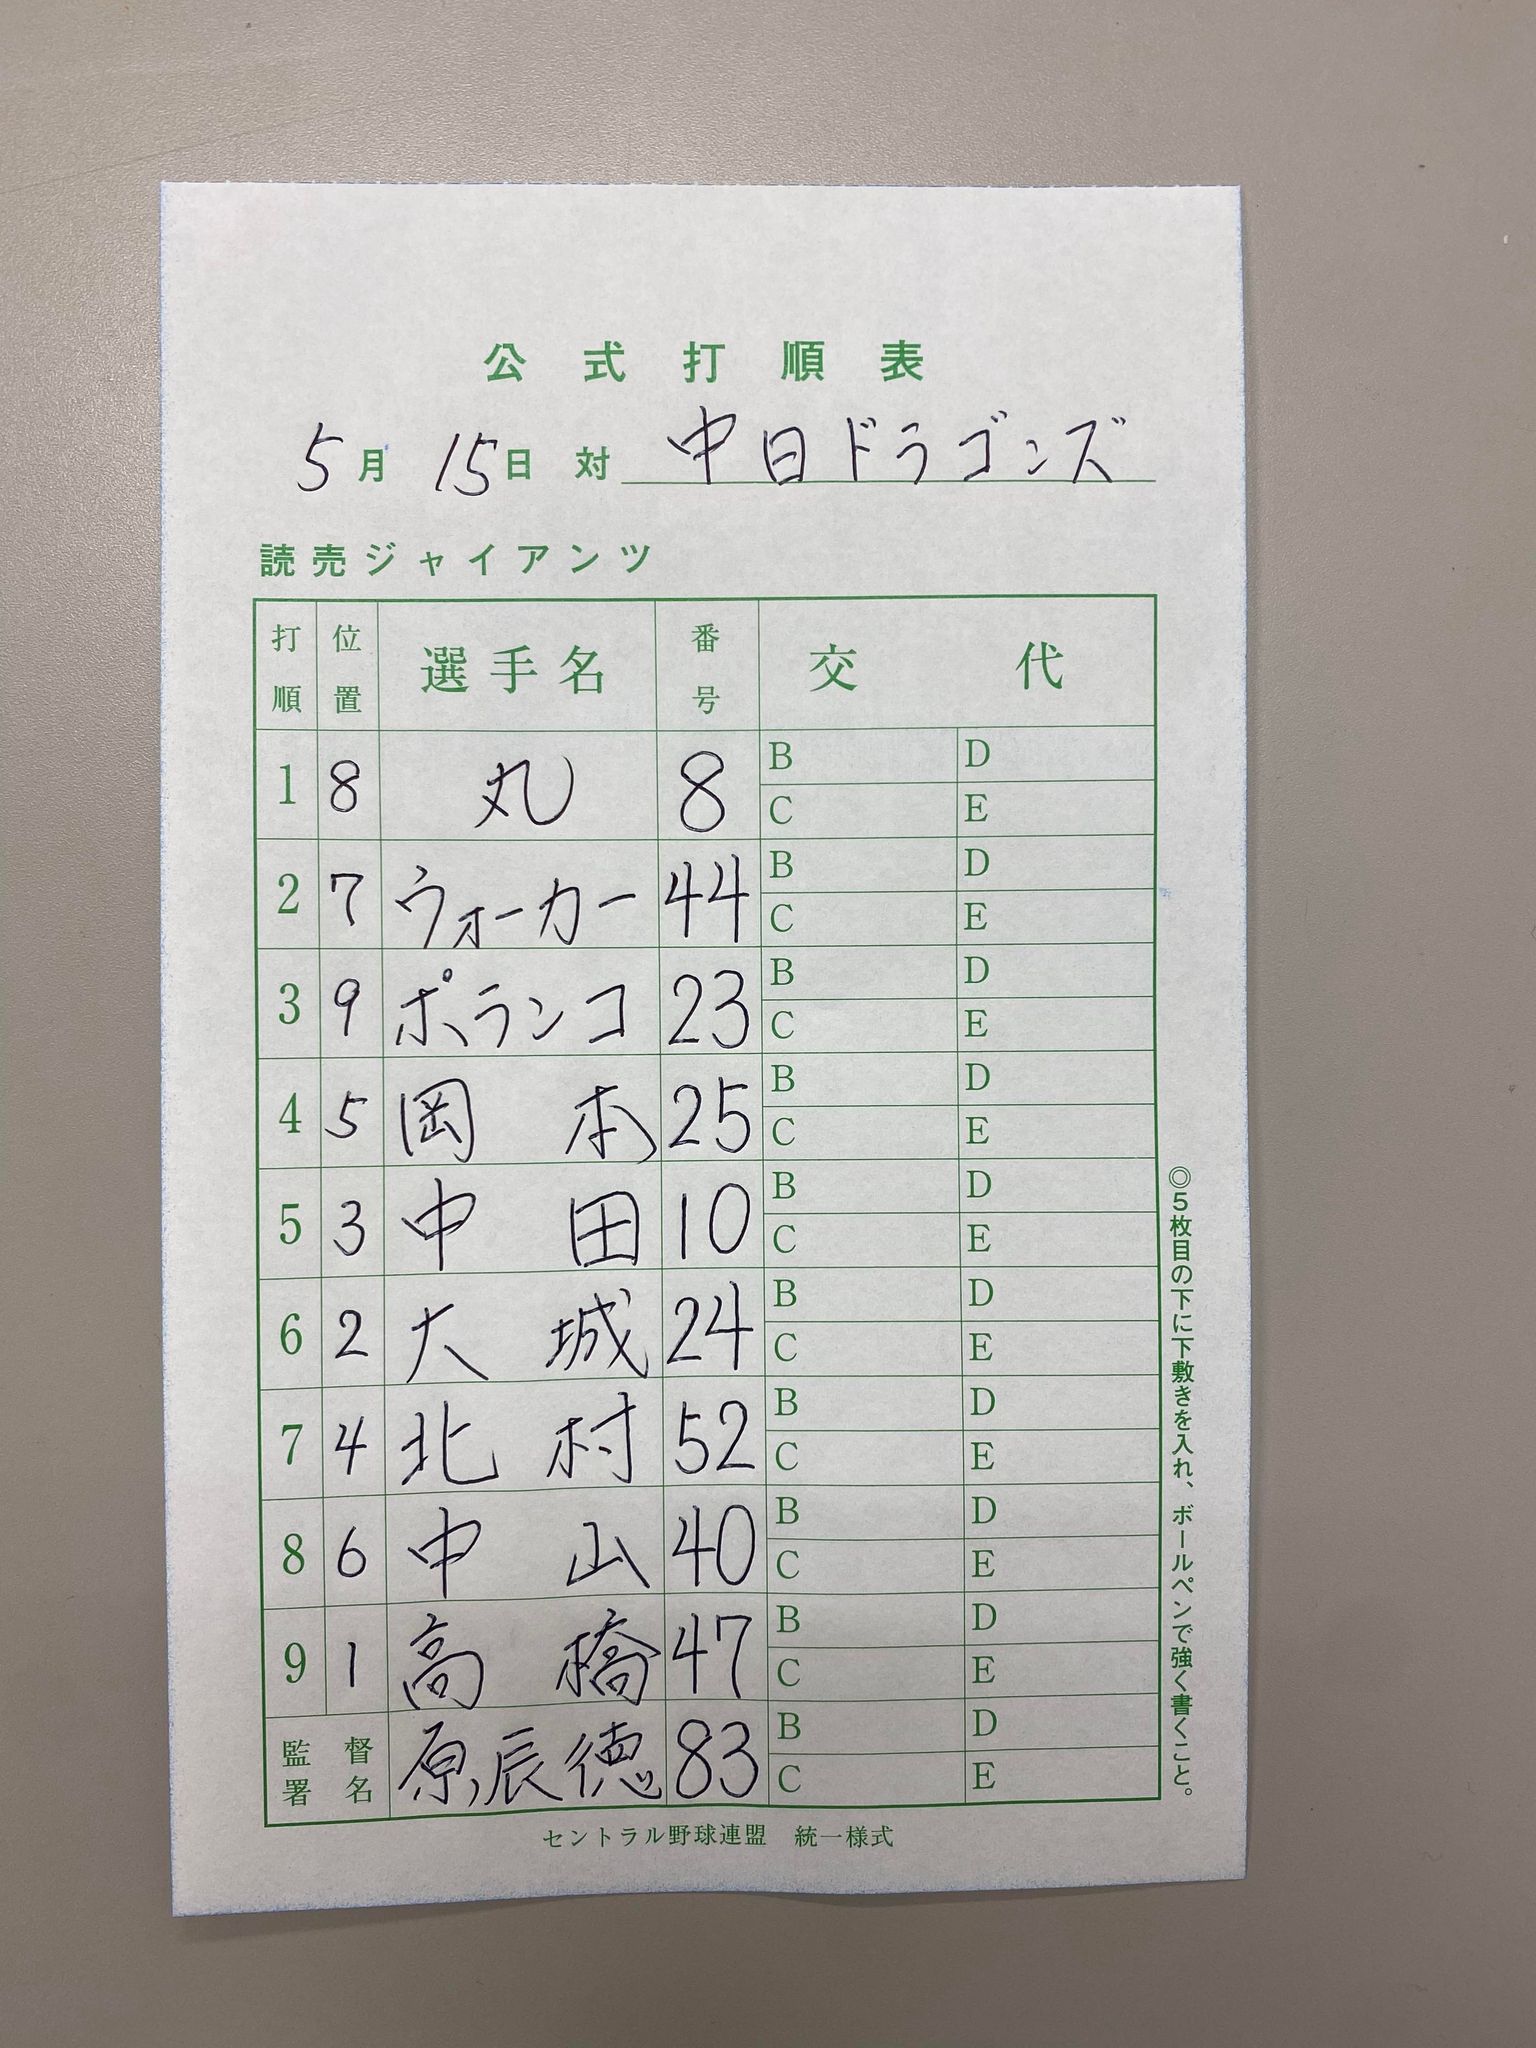 公式打順表
5月 15日 対 中日ドラゴンズ
読売ジャイアンツ
打順 位置 選手名 番号 交代
1 8 丸 8 B D
C E
2 7 ウォーカー 44 B D
C E
3 9 ポランコ 23 B D
C E
4 5 岡本 25 B D
C E
5 3 中田 10 B D
C E
6 2 大城 24 B D
C E
7 4 北村 52 B D
C E
8 6 中山 40 B D
C E
9 1 高橋 47 B D
C E
監督署名 原辰徳 83 B D
C E
セントラル野球連盟 統一様式
◎5枚目の下に下敷きを入れ、ボールペンで強く書くこと。